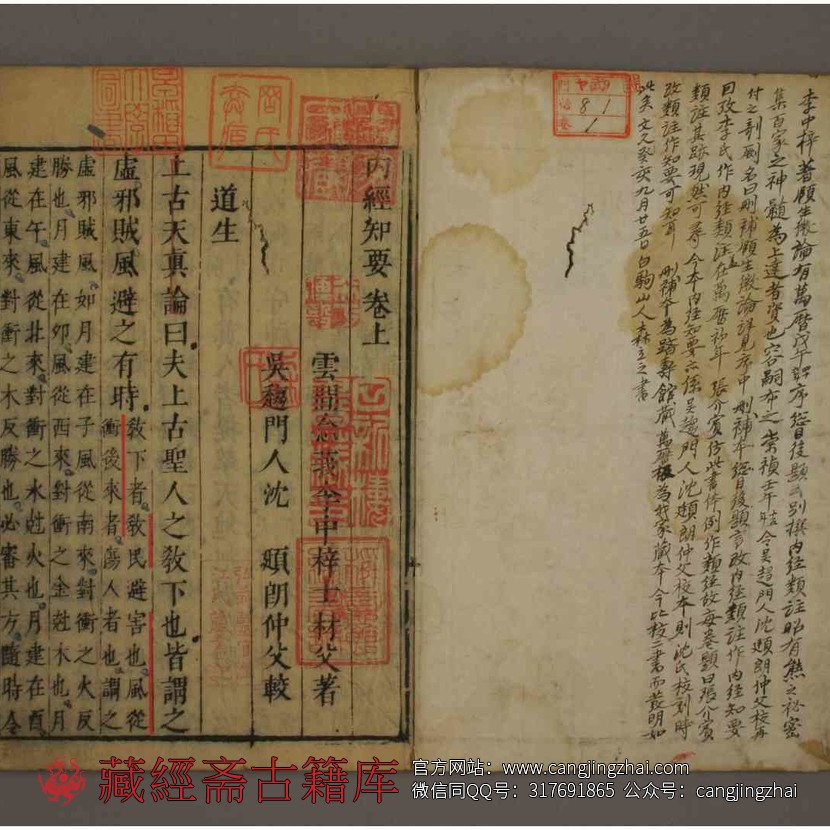 李中梓著頤生微論有萬曆戊午敘序總目後題云別撰內經類註昭有熊之秘密
集百家之神髓為上達者資也容嗣布之崇禎壬午時令吳趨門人沈頲朗仲父校再
付之剞劂名曰刪補頤生微論詳見序中刪補本總目後題言改內經類註作內經知要
因攷李氏作內經類註在萬曆初年張介賓仿此書体例作類經故每卷題曰張介賓
類註其跡現然可尋今本內經知要亦係吳趨門人沈頲朗仲父校本則沈氏校刻時
改類註作知要可知耳刪補本為躋壽館藏萬曆板為我家藏本今比校二書而發明如
此矣文久癸亥九月廿五日白駒山人森立之書
81
1
內經知要卷上
雲間念莪李中梓士材父著
吳趨門人沈頲朗仲父較
道生
上古天真論曰夫上古聖人之教下也皆謂之
虛邪賊風避之有時教下者教民避害也風從
衝後來者傷人者也謂之
虛邪賊風如月建在子風從南來對衝之火反
勝也月建在卯風從西來對衝之金尅木也月
建在午風從北來對衝之水尅火也月建在酉
風從東來對衝之木反勝也必審其方隨時令
藏經斋古籍库
官方网站：www.cangjingzhai.com
微信同QQ号：317691865 公众号：cangjingzhai